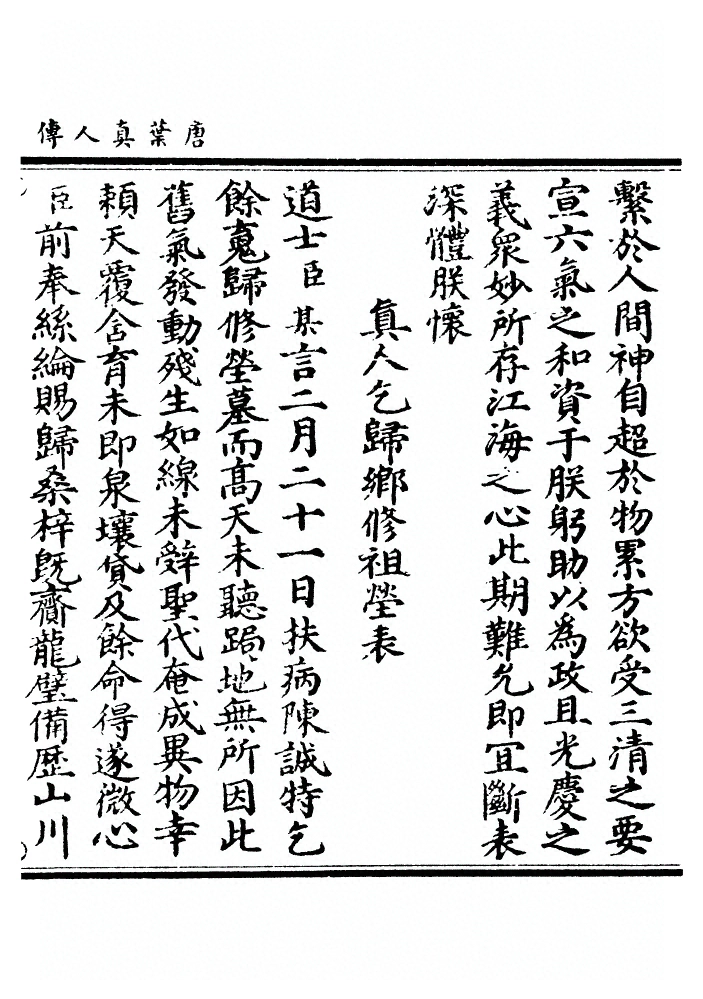 唐葉真人傳
繫於人間神自超於物累方欲受三清之要
宣六氣之和資于朕躬助以為政且光慶之
義眾妙所存江海之心此期難允即宜斷表
深體朕懷
真人乞歸鄉修祖塋表
道士臣某言二月二十一日扶病陳誠特乞
餘䰟歸修塋墓而高天未聽跼地無所因此
舊氣發動殘生如線未辤聖代奄成異物幸
賴天覆含育未即泉壤貸及餘命得遂微心
臣前奉絲綸賜歸桑梓既齎龍璧備歷山川